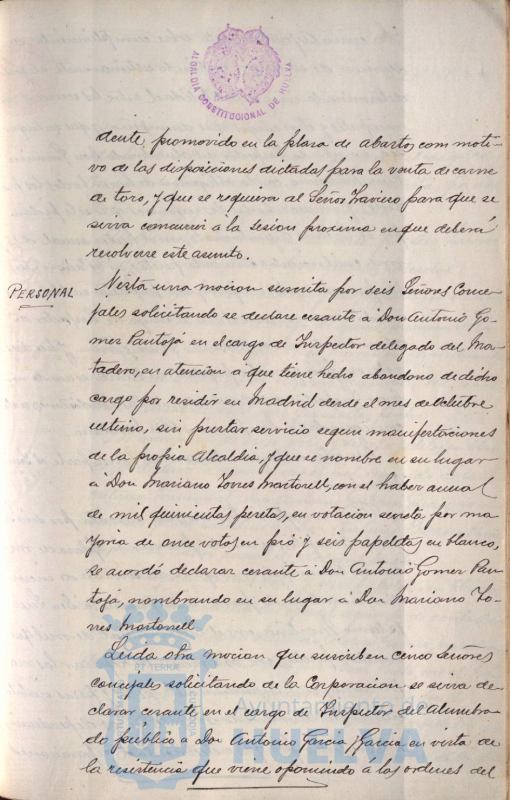 ALCALDÍA CONSTITUCIONAL DE HUELVA
dente, promovido en la plaza de abastos, con moti-
vo de las disposiciones dictadas para la venta de carne
de toro, y que se requiera al Señor para que se
sirva concurrir á la sesion proxima en que deberá
resolverse este asunto.
PERSONAL
Vista una mocion suscrita por seis Señores Conce-
jales solicitando se declare cesante á Don Antonio Go-
mez Pantoja en el cargo de Inspector delegado del Ma-
tadero, en atencion á que tiene hecho abandono de dicho
cargo por residir en Madrid desde el mes de Octubre
ultimo, sin prestar servicio segun manifestaciones
de la propia Alcaldia, y que se nombre en su lugar
á Don Mariano Torres Martorell, con el haber anual
de mil quinientas pesetas, en votacion secreta por ma-
yoria de once votos en pró y seis papeletas en blanco,
se acordó declarar cesante á Don Antonio Gomez Pan-
toja, nombrando en su lugar á Don Mariano To-
rres Martorell
Leida otra mocion que suscriben cinco Señores
concejales solicitando de la Corporacion se sirva de-
clarar cesante en el cargo de Inspector del Alumbra-
do público á Don Antonio Garcia y Garcia en vista de
la resistencia que viene oponiendo á las ordenes del
Ayuntamiento
HUELVA